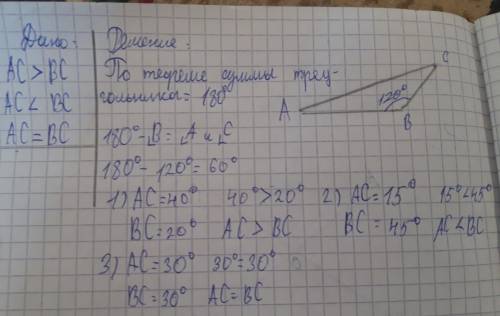 Дано:
AC > BC
AC < BC
AC = BC
Решение:
По теореме суммы треу-
гольника = 180°
180° - ∟B = ∟A и ∟C
180° - 120° = 60°
1) AC = 40° 40° > 20°
BC = 20° AC > BC
2) AC = 15° 15° < 45°
BC = 45° AC < BC
3) AC = 30° 30° = 30°
BC = 30° AC = BC
C
A
120°
B